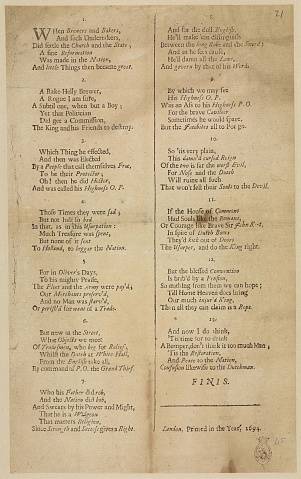 1.
WHen Brewers and Bakers,
And such Undertakers,
Did settle the Church and the State;
A fine Reformation
Was made in the Nation,
And little Things then became great.
2.
A Rake-Helly Brewer,
A Rogue I am sure,
A Subtil one, when but a Boy;
Yet this Politician
Did get a Commission,
The King and his Friends to destroy.
3.
Which Thing he effected,
And then was Elected
By a People that call themselves Free,
To be their Protector;
Oh! then he did Hector,
And was called his Highness O. P.
4.
Those Times they were sad;
But not half so bad
In that, as in this Usurpation:
Much Treasure was spent,
But none of it sent
To Holland, to beggar the Nation.
5.
For in Oliver's Days,
To his mighty Praise,
The Fleet and the Army were pay'd;
Our Merchants preserv'd,
And no Man was starv'd,
Or perish'd for want of a Trade.
6.
But now in the Street,
What Objects we meet
Of Tradesmen, who beg for Relief;
Whilst the Dutch at White-Hall,
From the English take all,
By command of P. O. the Grand Thief.
7.
Who his Father did rob,
And the Nation did bob,
And Swears by his Power and Might,
That he is a
That matters Religion,
Since Strength and Success gives a Right.
8.
And for the dull English,
He'll make 'em distinguish
Between the long Robe and the Sword;
And as he sees cause,
He'll damn all the Laws,
And govern by that of his Word.
9.
By which we may see
His Highness O. P.
Was an Ass to his Highness P. O.
For the brave Cavalier
Sometimes he would spare,
But the Jacobites all to Pot go.
10.
So 'tis very plain,
This damn'd cursed Reign
Of the two is far the worst Evil,
For Nose and the Dutch
Will ruine all such
That won't sell their Souls to the Devil.
11.
If the House of Commons
Had Souls like the Romans,
Or Courage like Brave Sir John K--t,
In spite of Dutch Boors
They'd kick out of Doors
The Usurper, and do the King right.
12.
But the blessed Convention
Is brib'd by a Pension,
So nothing from them we can hope;
Till Home Heaven does bring
Our much injur'd King,
Then all they can claim is a Rope.
13.
And now I do think,
'Tis time for to drink
A Bumper, don't think it too much Man;
'Tis the Restoration,
And Peace to the Nation,
Confusion likewise to the Dutchman.
FINIS.
London, Printed in the Year, 1694.